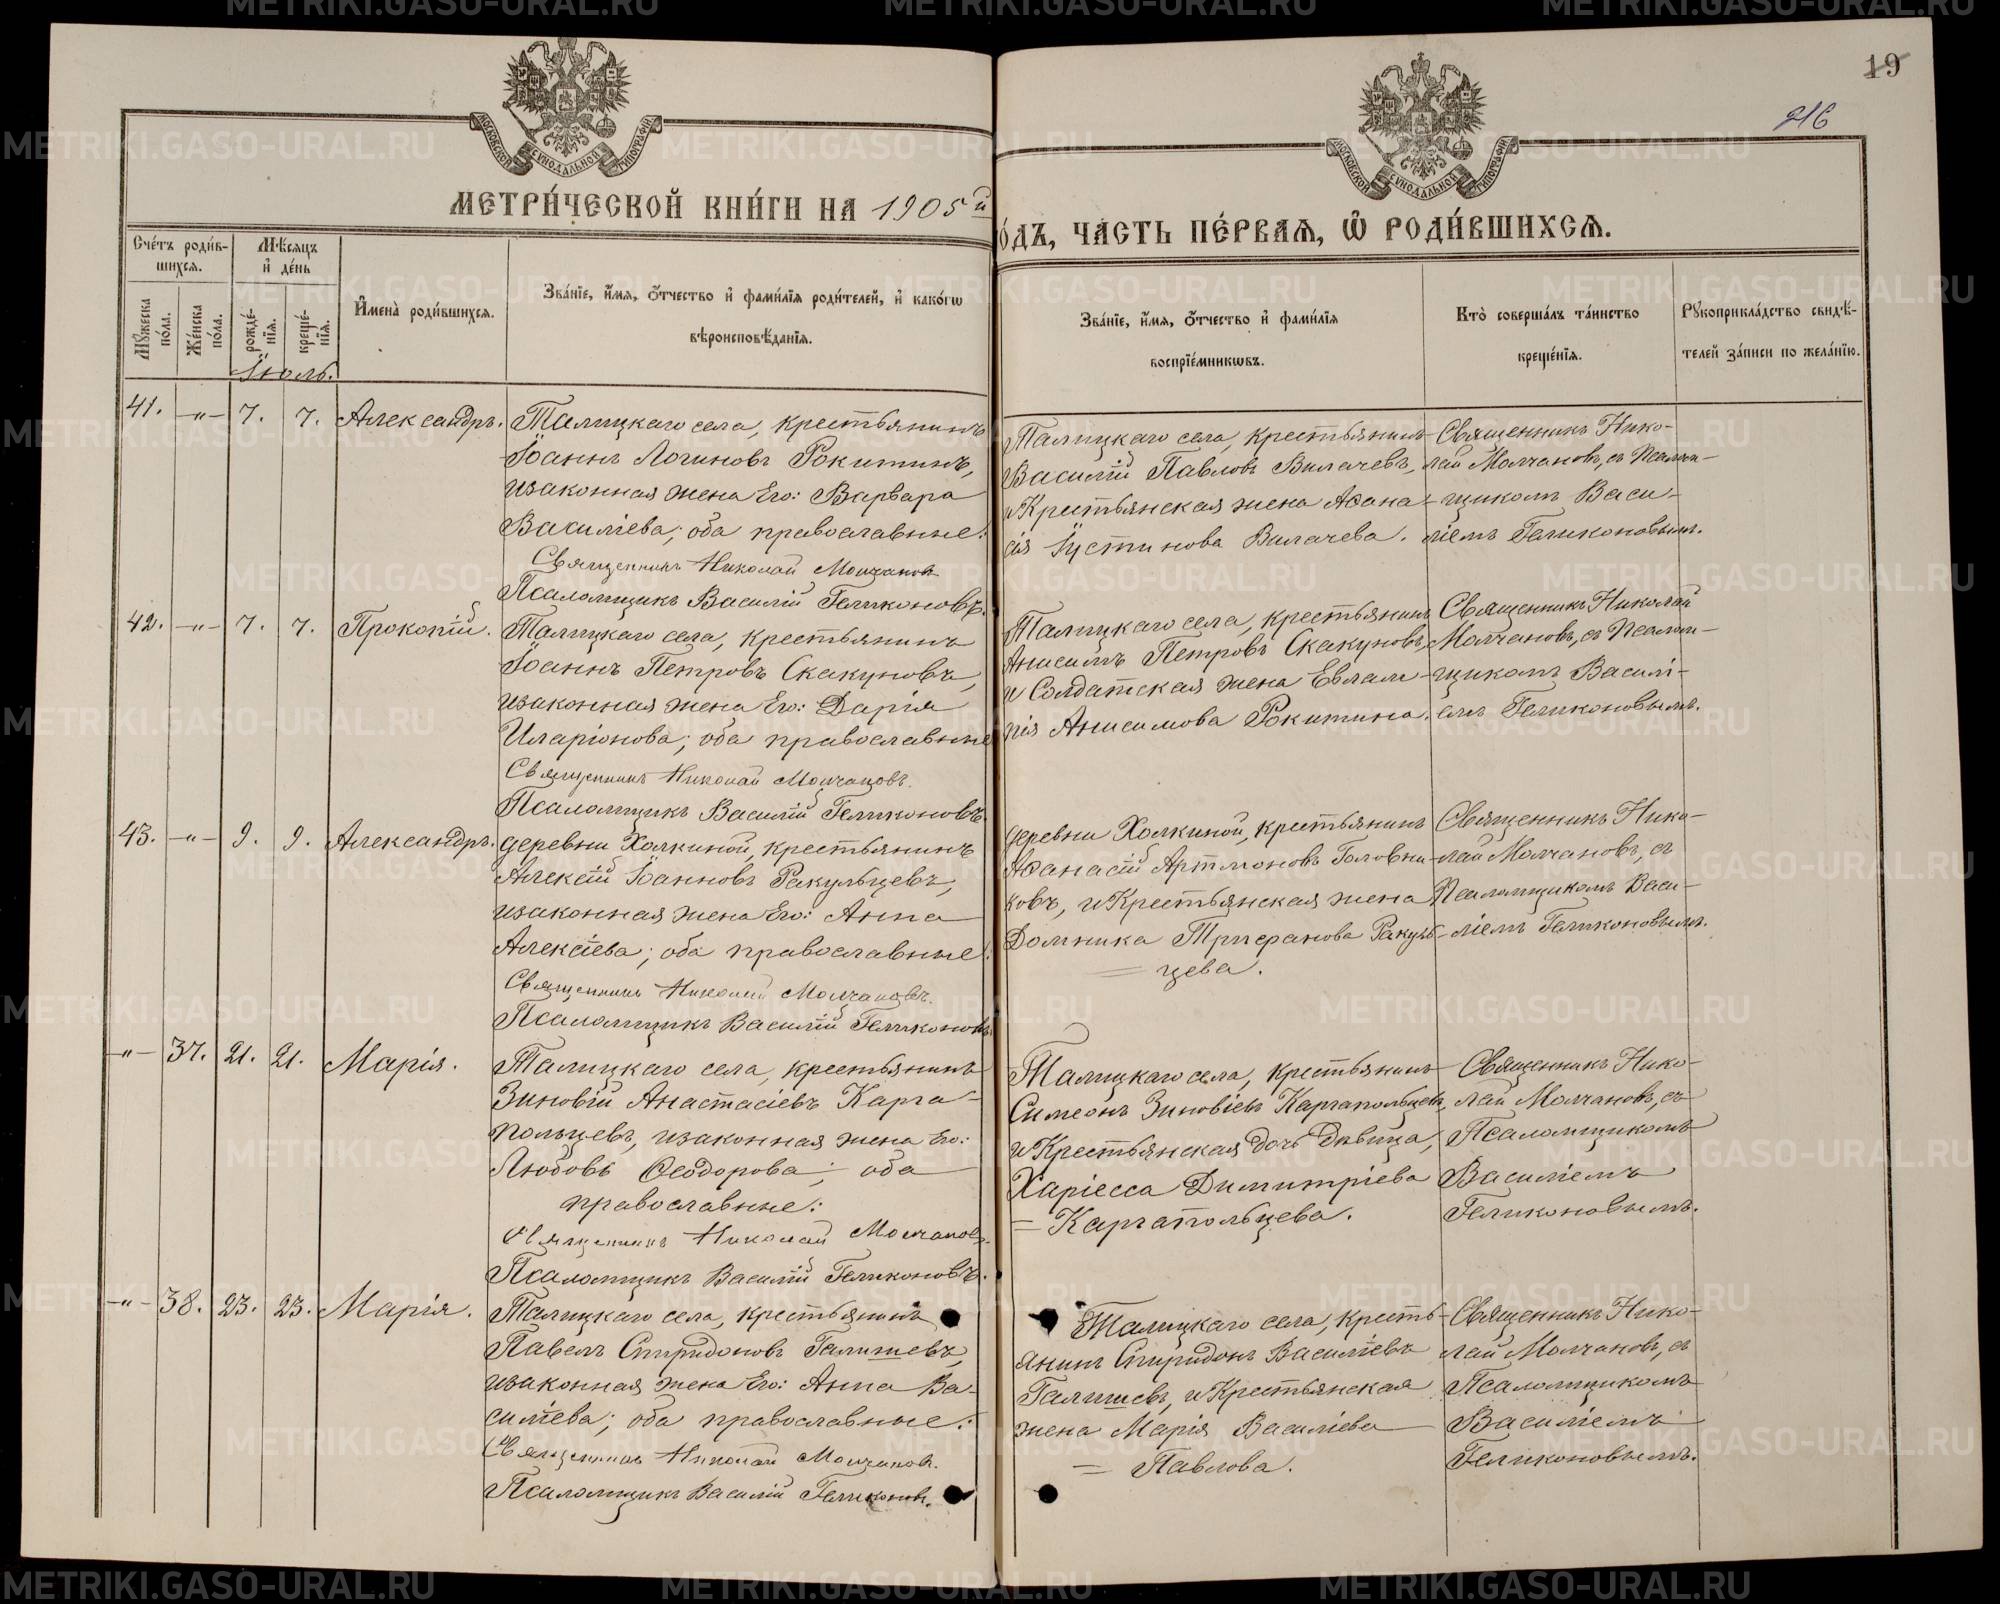 19
216
МОСКОВСКОЙ СѴНОДАЛЬНОЙ ТИПОГРАФІИ
МОСКОВСКОЙ СѴНОДАЛЬНОЙ ТИПОГРАФІИ
МЕТРИ́ЧЕСКОЙ КНИ́ГИ НА 1905й
О́ДЪ, ЧА́СТЬ ПЕ́РВАѦ, Ѡ РОДИ́ВШИХСѦ.
Сче́тъ роди́в-
шихсѧ.
Мѣ́сѧцъ
и де́нь
Мꙋ́жеска
по́ла.
Же́нска
по́ла.
рожде́-
нїѧ.
креще́-
нїѧ.
Имена̀ роди́вшихсѧ.
Зва́нїе, и́мѧ, о́тчество и фами́лїѧ роди́телей, и како́гѡ
вѣроисповѣ́данїѧ.
Зва́нїе, и́мѧ, о́тчество и фами́лїѧ
воспрїе́мникѡвъ.
Кто̀ соверша́лъ та́инство
креще́нїѧ.
Рꙋкоприкла́дство свидѣ́-
телей за́писи по жела́нїю.
Іюль.
41. -"- 7. 7. Александръ.
Талицкаго села, крестьянинъ
Іоаннъ Логиновъ Рокитинъ,
изаконная жена Его: Варвара
Василіева; оба православные:
Священникъ Николай Молчановъ
Псаломщикъ Василій Геликоновъ.
Талицкаго села, крестьянинъ
Василій Павловъ Вилачевъ,
и Крестьянская жена Аѳана-
сія Іустинова Вилачева.
Священникъ Нико-
лай Молчановъ, съ Псалом-
щикомъ Васи-
ліемъ Геликоновымъ.
42. -"- 7. 7. Прокопій.
Талицкаго села, крестьянинъ
Іоаннъ Петровъ Скакуновъ,
изаконная жена Его: Дарія
Иларіонова; оба православные
Священникъ Николай Молчановъ.
Псаломщикъ Василій Геликоновъ.
Талицкаго села, крестьянинъ
Анисимъ Петровъ Скакуновъ,
и Солдатская жена Евлам-
пія Анисимова Рокитина.
Священникъ Николай
Молчановъ, съ Псалом-
щикомъ Василі-
емъ Геликоновымъ.
43. -"- 9. 9. Александръ.
деревни Холкиной, крестьянинъ
Алексій Іоанновъ Ракульцевъ,
изаконная жена Его: Анна
Алексіева; оба православные:
Священникъ Николай Молчановъ.
Псаломщикъ Василій Геликоновъ
деревни Холкиной, крестьянинъ
Аѳанасій Артмоновъ Головни-
ковъ, и Крестьянская жена
Домника Триѳанова Ракуль-
цева.
Священникъ Нико-
лай Молчановъ, съ
Псаломщикомъ Васи-
ліемъ Геликоновымъ.
-"- 37. 21. 21. Марія.
Талицкаго села, крестьянинъ
Зиновій Анастасіевъ Карга-
польцевъ, изаконная жена Его:
Любовь Ѳеодорова; оба
православные:
Священникъ Николай Молчановъ.
Псаломщикъ Василій Геликоновъ.
Талицкаго села, крестьянинъ
Симеонъ Зиновіевъ Каргапольцевъ,
и Крестьянская дочь Дѣвица,
Харіесса Димитріева
= Каргапольцева.
Священникъ Нико-
лай Молчановъ, съ
Псаломщикомъ
Василіемъ
Геликоновымъ.
-"- 38. 23. 23. Марія.
Талицкаго села, крестьянинъ
Павелъ Спиридоновъ Галишевъ,
изаконная жена Его: Анна Ва-
силіева; оба православные:
Священникъ Николай Молчановъ.
Псаломщикъ Василій Геликоновъ.
Талицкаго села, кресть-
янинъ Спиридонъ Василіевъ
Галишевъ, и Крестьянская
жена Марія Василіева
= Павлова.
Священникъ Нико-
лай Молчановъ, съ
Псаломщикомъ
Василіемъ
Геликоновымъ.
METRIKI.GASO-URAL.RU